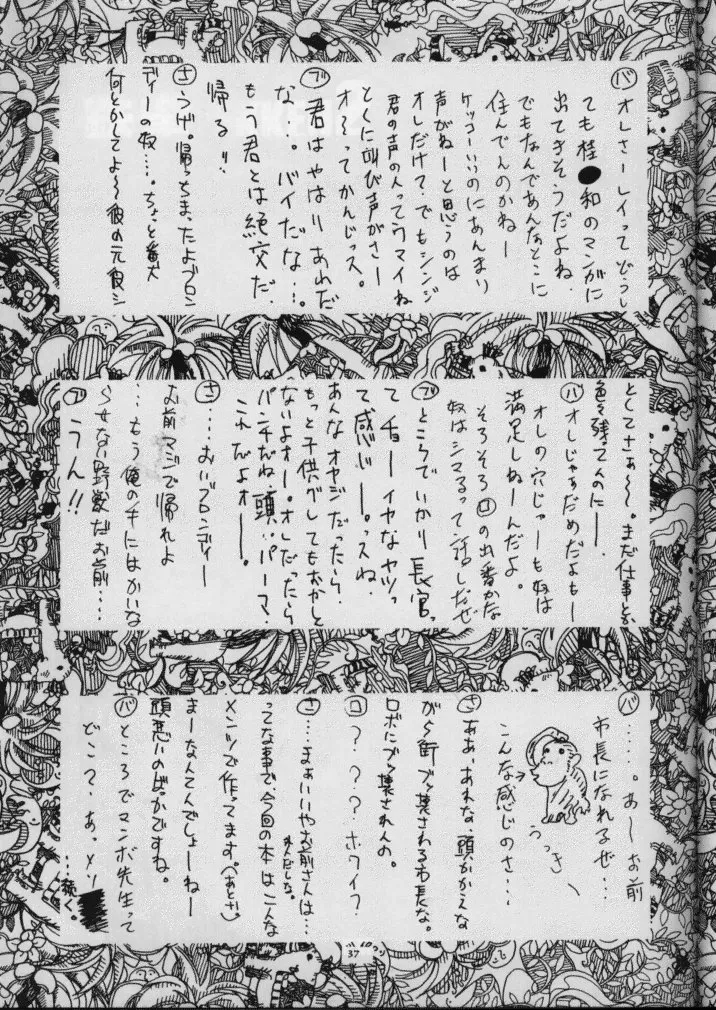 バ オレさーレイってどーし
ても桂●和のマンガに
出てきそうだよね。
でもなんであんなとこに
住んでんのかねー
ケッコーいいのにあんまり
声がねーと思うのは
オレだけ？でもシンジ
君の声の人ってウマイね
とくに叫び声がさー
オ〜ってかんじっス。
ブ 君はやはりあれだ
な…。バイだな…。
もう君とは絶交だ。
帰る!!
さ うげ。帰っちまったよブロン
ディーの奴……。ちょっと番犬
何とかしてよ〜彼の元食シ
とくてさぁ〜。まだ仕事とか
色々残ってんのにー。
バ オレじゃぁだめだよもー
オレの穴じゃーも奴は
満足しねーんだよ。
そろそろロの出番かな
奴はシマるって話しだぜ
ブ ところでいかり長官っ
てチョーイヤなヤツっ
て感じー。っスね。
あんなオヤジだったら
もっと子供グレてもおかしく
ないよオー。オレだったら
パンチだね。頭、パーマ。
これだよオー。
さ …。おいブロンディー
お前マジで帰れよ
…もう俺の手にはおえな
らせない野獣だお前…
ブ うん!!
バ ……。あーお前
市長になれるぜ…
こんな感じのさ…
うっきー
さ ああ、あれな、頭かかえな
がら街ブッ壊される市長な。
ロボにブッ壊されんの。
ロ ？？？ホワイ？
さ …まぁいいやお前さんは…
ってな事で今回の本はこんな
メンツで作ってます。(あとガ)
まーなんてんでしょーねー
頭悪いのばっかですね。
バ ところでマンボ先生って
どこ？あっメリ
…続く。
37